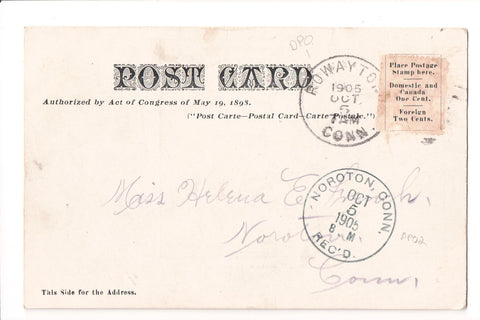 DPO
POST CARD
Authorized by Act of Congress of May 19, 1898.
("Post Carte—Postal Card—Carte Postale.")
ROWAYTON
1905
OCT
5
7 AM
CONN.
Place Postage
Stamp here.
Domestic and
Canada
One Cent.
Foreign
Two Cents.
Miss Helena E.
Noroton
Conn.
NOROTON, CONN.
OCT
5
1905
8 M
REC'D.
This Side for the Address.